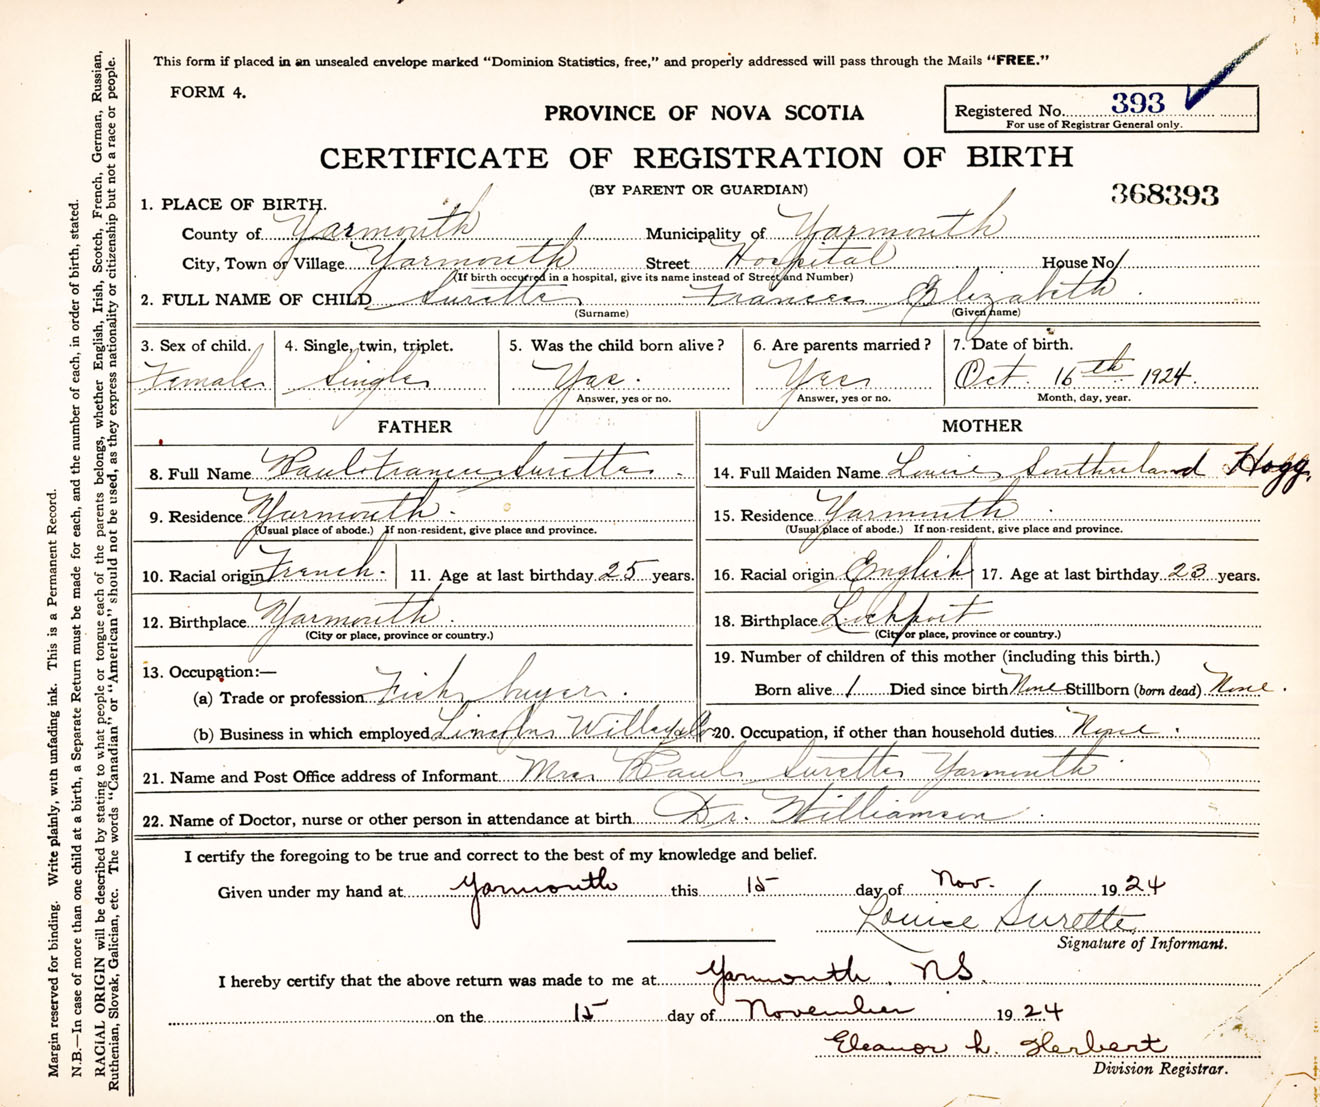 This form if placed in an unsealed envelope marked "Dominion Statistics, free," and properly addressed will pass through the Mails "FREE."
FORM 4.
PROVINCE OF NOVA SCOTIA
Registered No. 393
For use of Registrar General only.
CERTIFICATE OF REGISTRATION OF BIRTH
(BY PARENT OR GUARDIAN)
368393
1. PLACE OF BIRTH.
County of Yarmouth Municipality of Yarmouth
City, Town or Village Yarmouth Street Hospital House No /
(If birth occurred in a hospital, give its name instead of Street and Number)
2. FULL NAME OF CHILD Surette Frances Elizabeth.
(Surname) (Given name)
3. Sex of child. 4. Single, twin, triplet. 5. Was the child born alive? 6. Are parents married? 7. Date of birth.
Female Single Yes. Yes Oct. 16th 1924.
Answer, yes or no. Answer, yes or no. Month, day, year.
FATHER MOTHER
8. Full Name Paul Francis Surette. 14. Full Maiden Name Louise Southerland Hogg.
9. Residence Yarmouth. 15. Residence Yarmouth.
(Usual place of abode.) If non-resident, give place and province. (Usual place of abode.) If non-resident, give place and province.
10. Racial origin French. 11. Age at last birthday 25 years. 16. Racial origin English 17. Age at last birthday 23 years.
12. Birthplace Yarmouth. 18. Birthplace Lockport
(City or place, province or country.) (City or place, province or country.)
13. Occupation:— 19. Number of children of this mother (including this birth.)
(a) Trade or profession Fish buyer. Born alive 1 Died since birth None Stillborn (born dead) None.
(b) Business in which employed Lincoln Willey Co 20. Occupation, if other than household duties None.
21. Name and Post Office address of Informant Mrs Paul Surette Yarmouth.
22. Name of Doctor, nurse or other person in attendance at birth Dr. Williamson.
I certify the foregoing to be true and correct to the best of my knowledge and belief.
Given under my hand at Yarmouth this 15 day of Nov. 1924
Louise Surette
Signature of Informant.
I hereby certify that the above return was made to me at Yarmouth, N.S.
on the 15 day of November 1924
Eleanor L. Herbert
Division Registrar.
Margin reserved for binding. Write plainly, with unfading ink. This is a Permanent Record.
N.B.—In case of more than one child at a birth, a Separate Return must be made for each, and the number of each, in order of birth, stated.
RACIAL ORIGIN will be described by stating to what people or tongue each of the parents belongs, whether English, Irish, Scotch, French, German, Russian,
Ruthenian, Slovak, Galician, etc. The words "Canadian" or "American" should not be used, as they express nationality or citizenship but not a race or people.